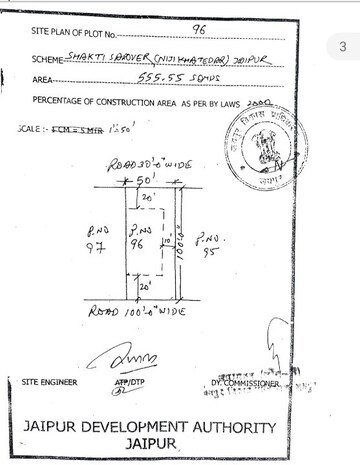 SITE PLAN OF PLOT No. 96
SCHEME- SHAKTI SAROVER (NIJI KHATEDARI) JAIPUR
AREA- 555.55 SQYDS
PERCENTAGE OF CONSTRUCTION AREA AS PER BY LAWS
SCALE :- 1"=50'
3
जयपुर विकास प्राधिकरण
जयपुर
ROAD 30'-0" WIDE
50'
20'
P.NO
97
P.NO
96
10'
100'-0"
P.NO.
95
20'
ROAD 100'-0" WIDE
SITE ENGINEER
ATP/DTP
DY. COMMISSIONER
JAIPUR DEVELOPMENT AUTHORITY
JAIPUR